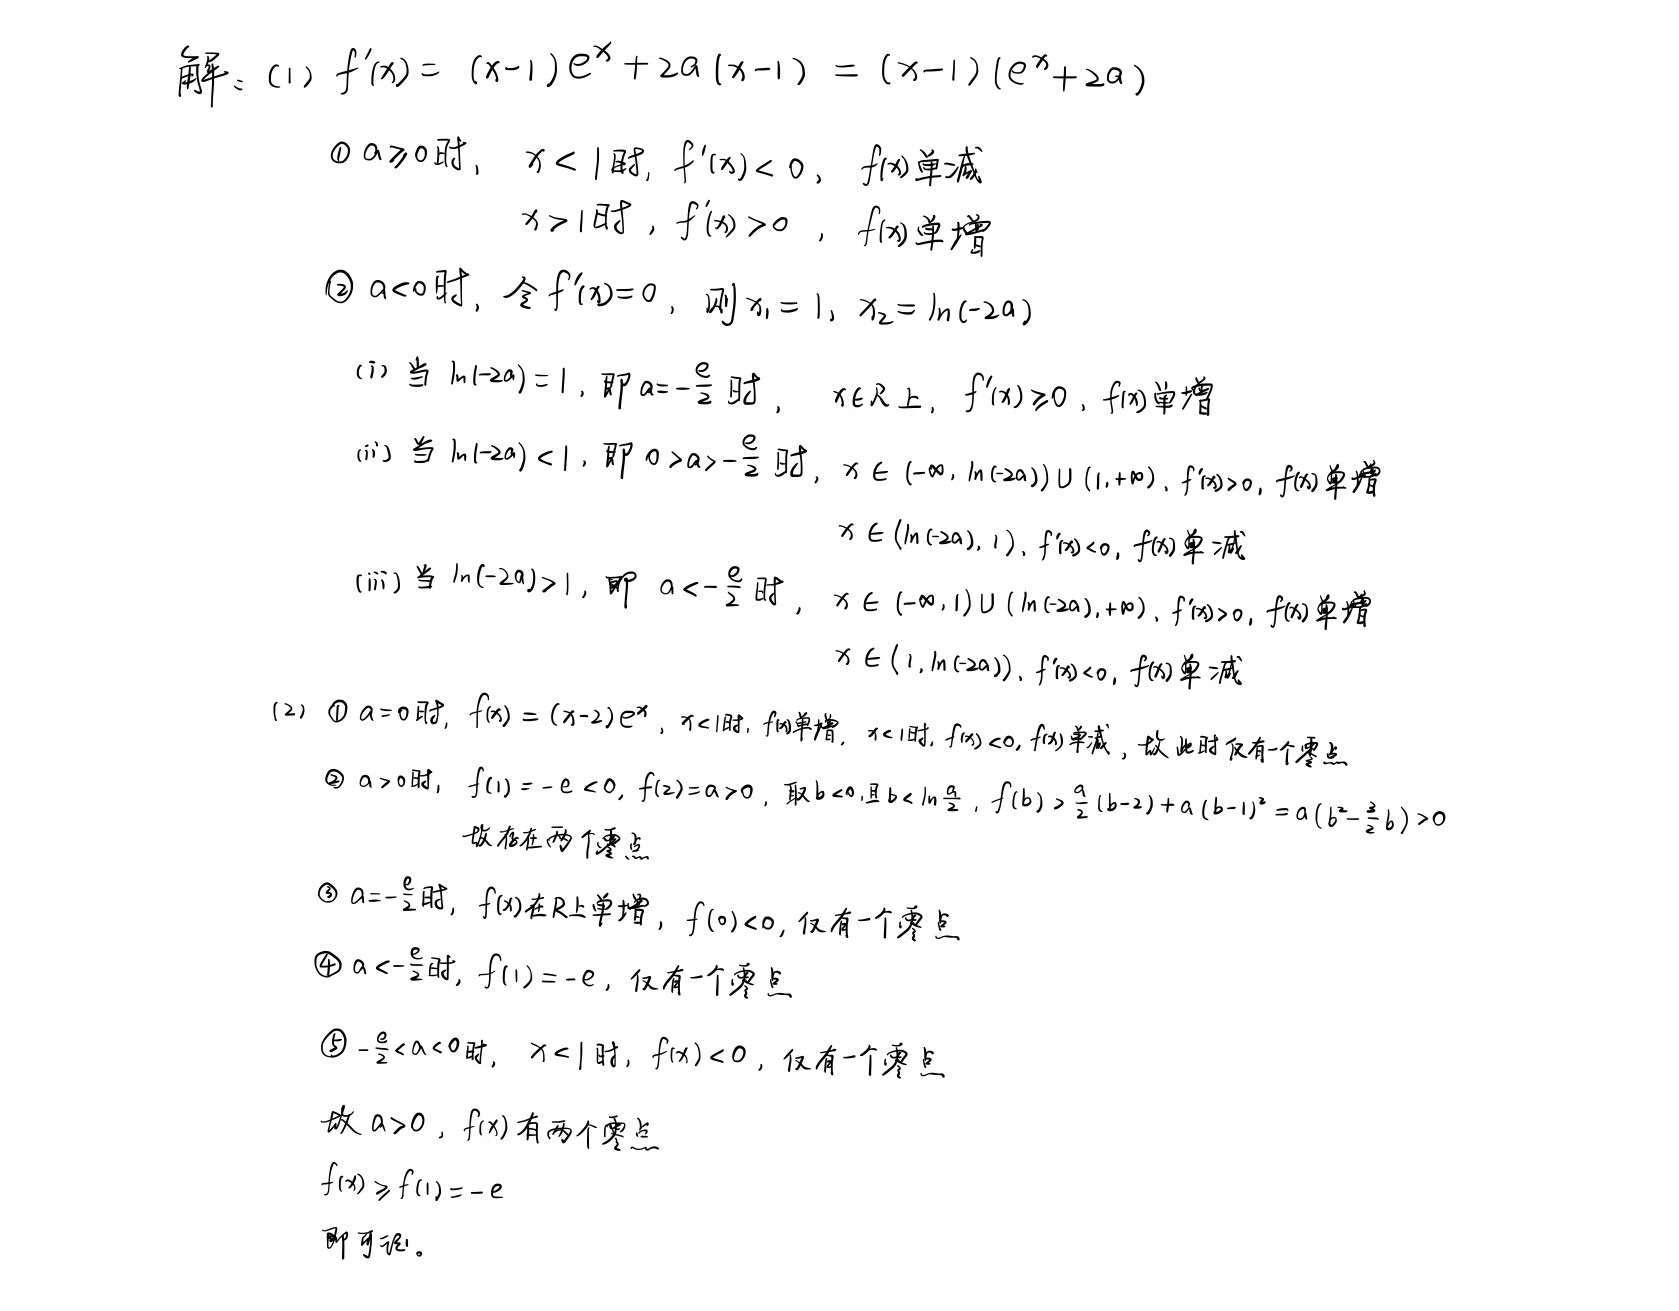 解：(1) f'(x) = (x-1)eˣ + 2a(x-1) = (x-1)(eˣ+2a)
① a≥0时, x<1时, f'(x)<0, f(x)单减
x>1时, f'(x)>0, f(x)单增
② a<0时, 令f'(x)=0, 则x₁=1, x₂=ln(-2a)
(i) 当 ln(-2a)=1, 即 a=-e/2 时, x∈R上, f'(x)≥0, f(x)单增
(ii) 当 ln(-2a)<1, 即 0>a>-e/2 时, x∈(-∞, ln(-2a))∪(1,+∞), f'(x)>0, f(x)单增
x∈(ln(-2a), 1), f'(x)<0, f(x)单减
(iii) 当 ln(-2a)>1, 即 a<-e/2 时, x∈(-∞,1)∪(ln(-2a),+∞), f'(x)>0, f(x)单增
x∈(1, ln(-2a)), f'(x)<0, f(x)单减
(2) ① a=0时, f(x)=(x-2)eˣ, x<1时, f(x)单增, x<1时, f(x)<0, f(x)单减, 故此时仅有一个零点
② a>0时, f(1)=-e<0, f(2)=a>0, 取b<0且b<ln a/2, f(b)>a/2(b-2)+a(b-1)²=a(b²-3/2b)>0
故存在两个零点
③ a=-e/2时, f(x)在R上单增, f(0)<0, 仅有一个零点
④ a<-e/2时, f(1)=-e, 仅有一个零点
⑤ -e/2<a<0时, x<1时, f(x)<0, 仅有一个零点
故 a>0, f(x)有两个零点
f(x)≥f(1)=-e
即可证。